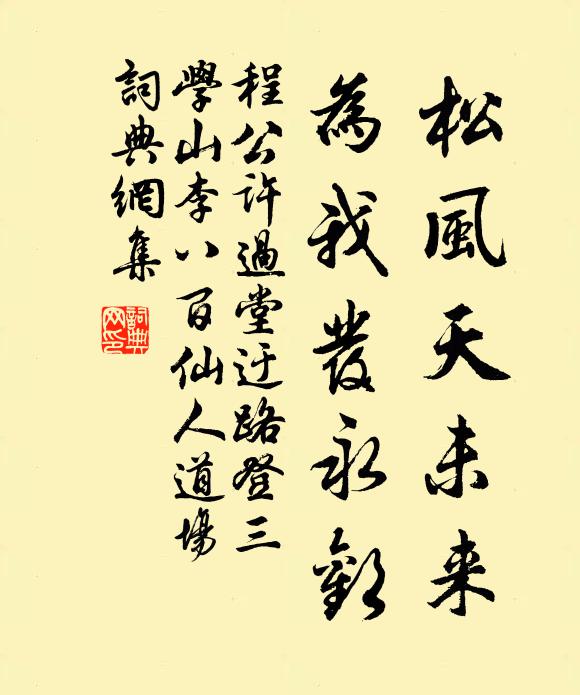 松風天末来
為我發永歎
程公許過堂迂路登三
學山李八百仙人道場
詞典網集
詞典网印